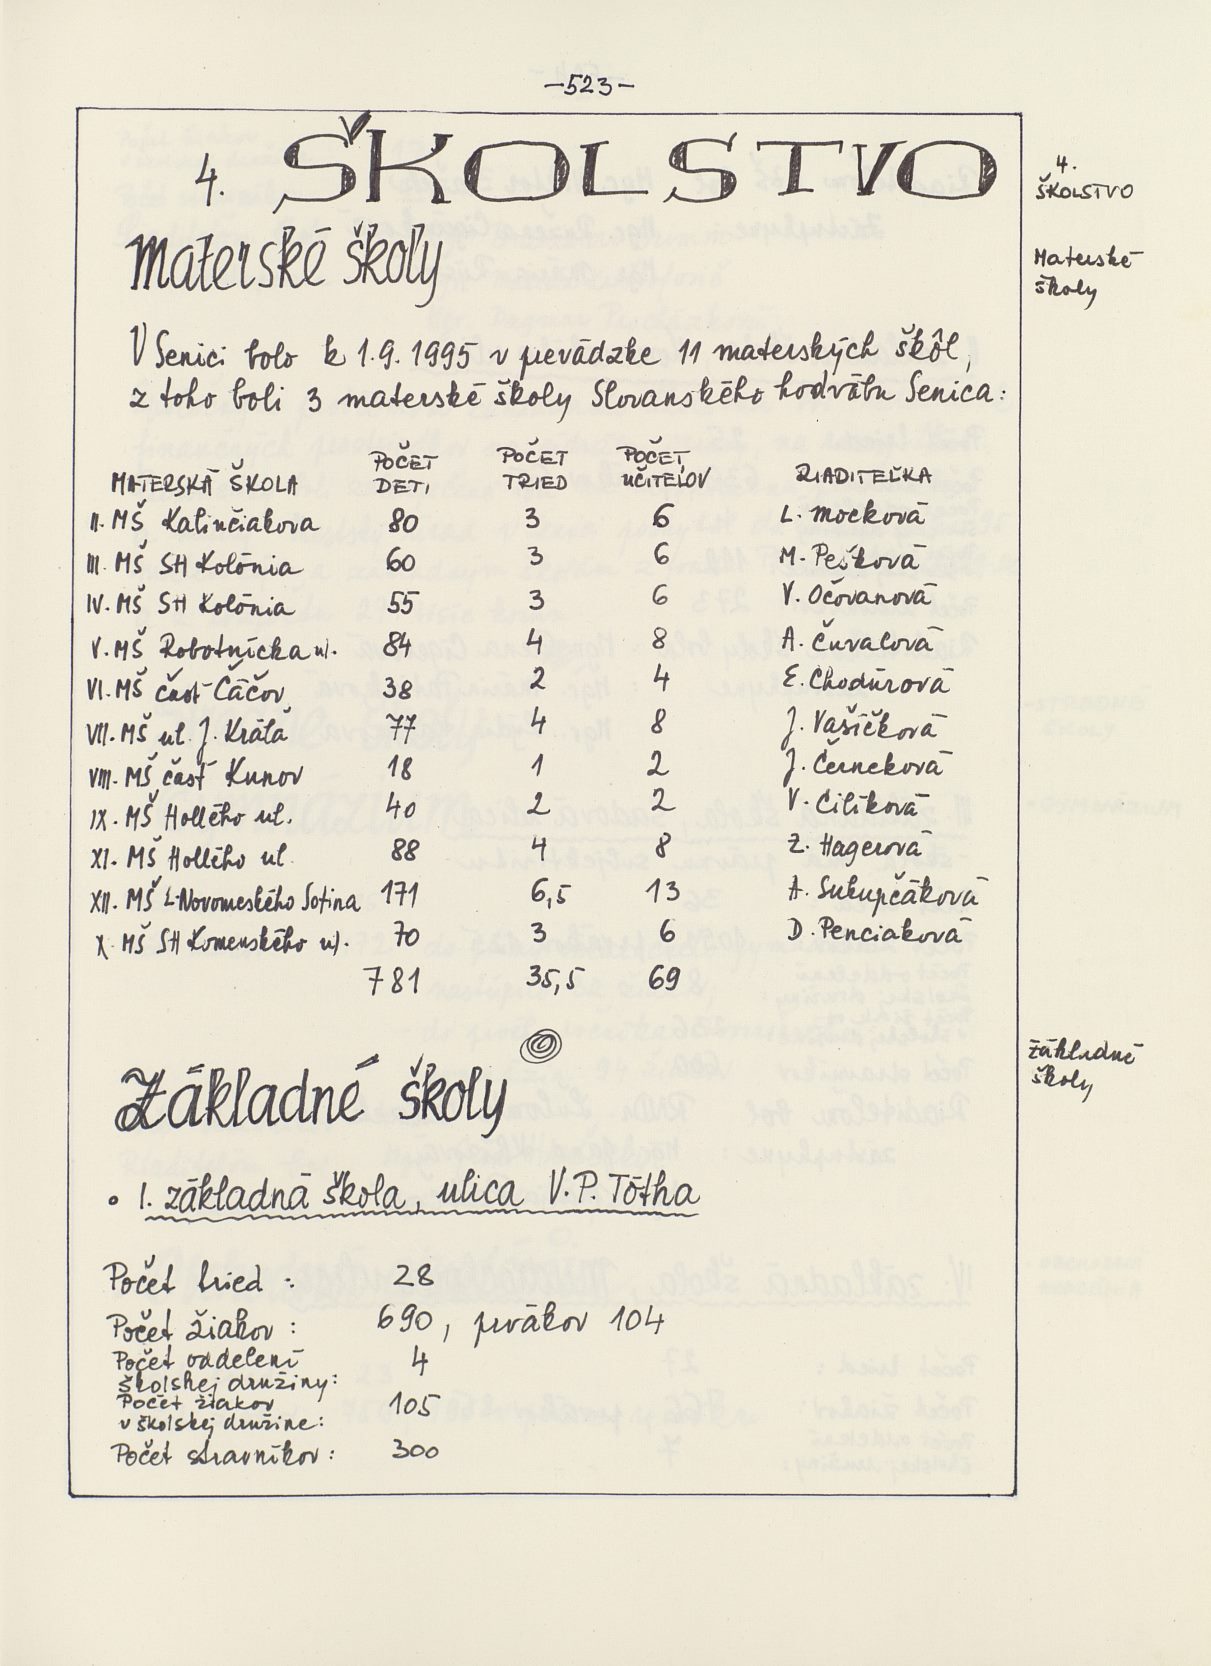 -523-
4. ŠKOLSTVO
4.
ŠKOLSTVO
Materské školy
Materské
školy
V Senici bolo k 1.9.1995 v prevádzke 11 materských škôl,
z toho boli 3 materské školy Slovanského hodvábu Senica:
MATERSKÁ ŠKOLA POČET DETÍ POČET TRIED POČET UČITEĽOV RIADITEĽKA
II. MŠ Kalinčiakova 80 3 6 L. Mocková
III. MŠ SH Kolónia 60 3 6 M. Pešková
IV. MŠ SH Kolónia 55 3 6 V. Očovanová
V. MŠ Robotnícka ul. 84 4 8 A. Čuvalová
VI. MŠ časť Čáčov 38 2 4 E. Chodúrová
VII. MŠ ul. J. Kráľa 77 4 8 J. Vašíčková
VIII. MŠ časť Kunov 18 1 2 J. Černeková
IX. MŠ Hollého ul. 40 2 2 V. Cilíková
XI. MŠ Hollého ul. 88 4 8 Z. Hagerová
XII. MŠ L. Novomeského Sotina 171 6,5 13 A. Sukupčáková
X. MŠ SH Komenského ul. 70 3 6 D. Penciaková
781 35,5 69
Základné školy
Základné
školy
• I. základná škola, ulica V. P. Tótha
Počet tried : 28
Počet žiakov : 690, prvákov 104
Počet oddelení
školskej družiny: 4
Počet žiakov
v školskej družine: 105
Počet stravníkov : 300